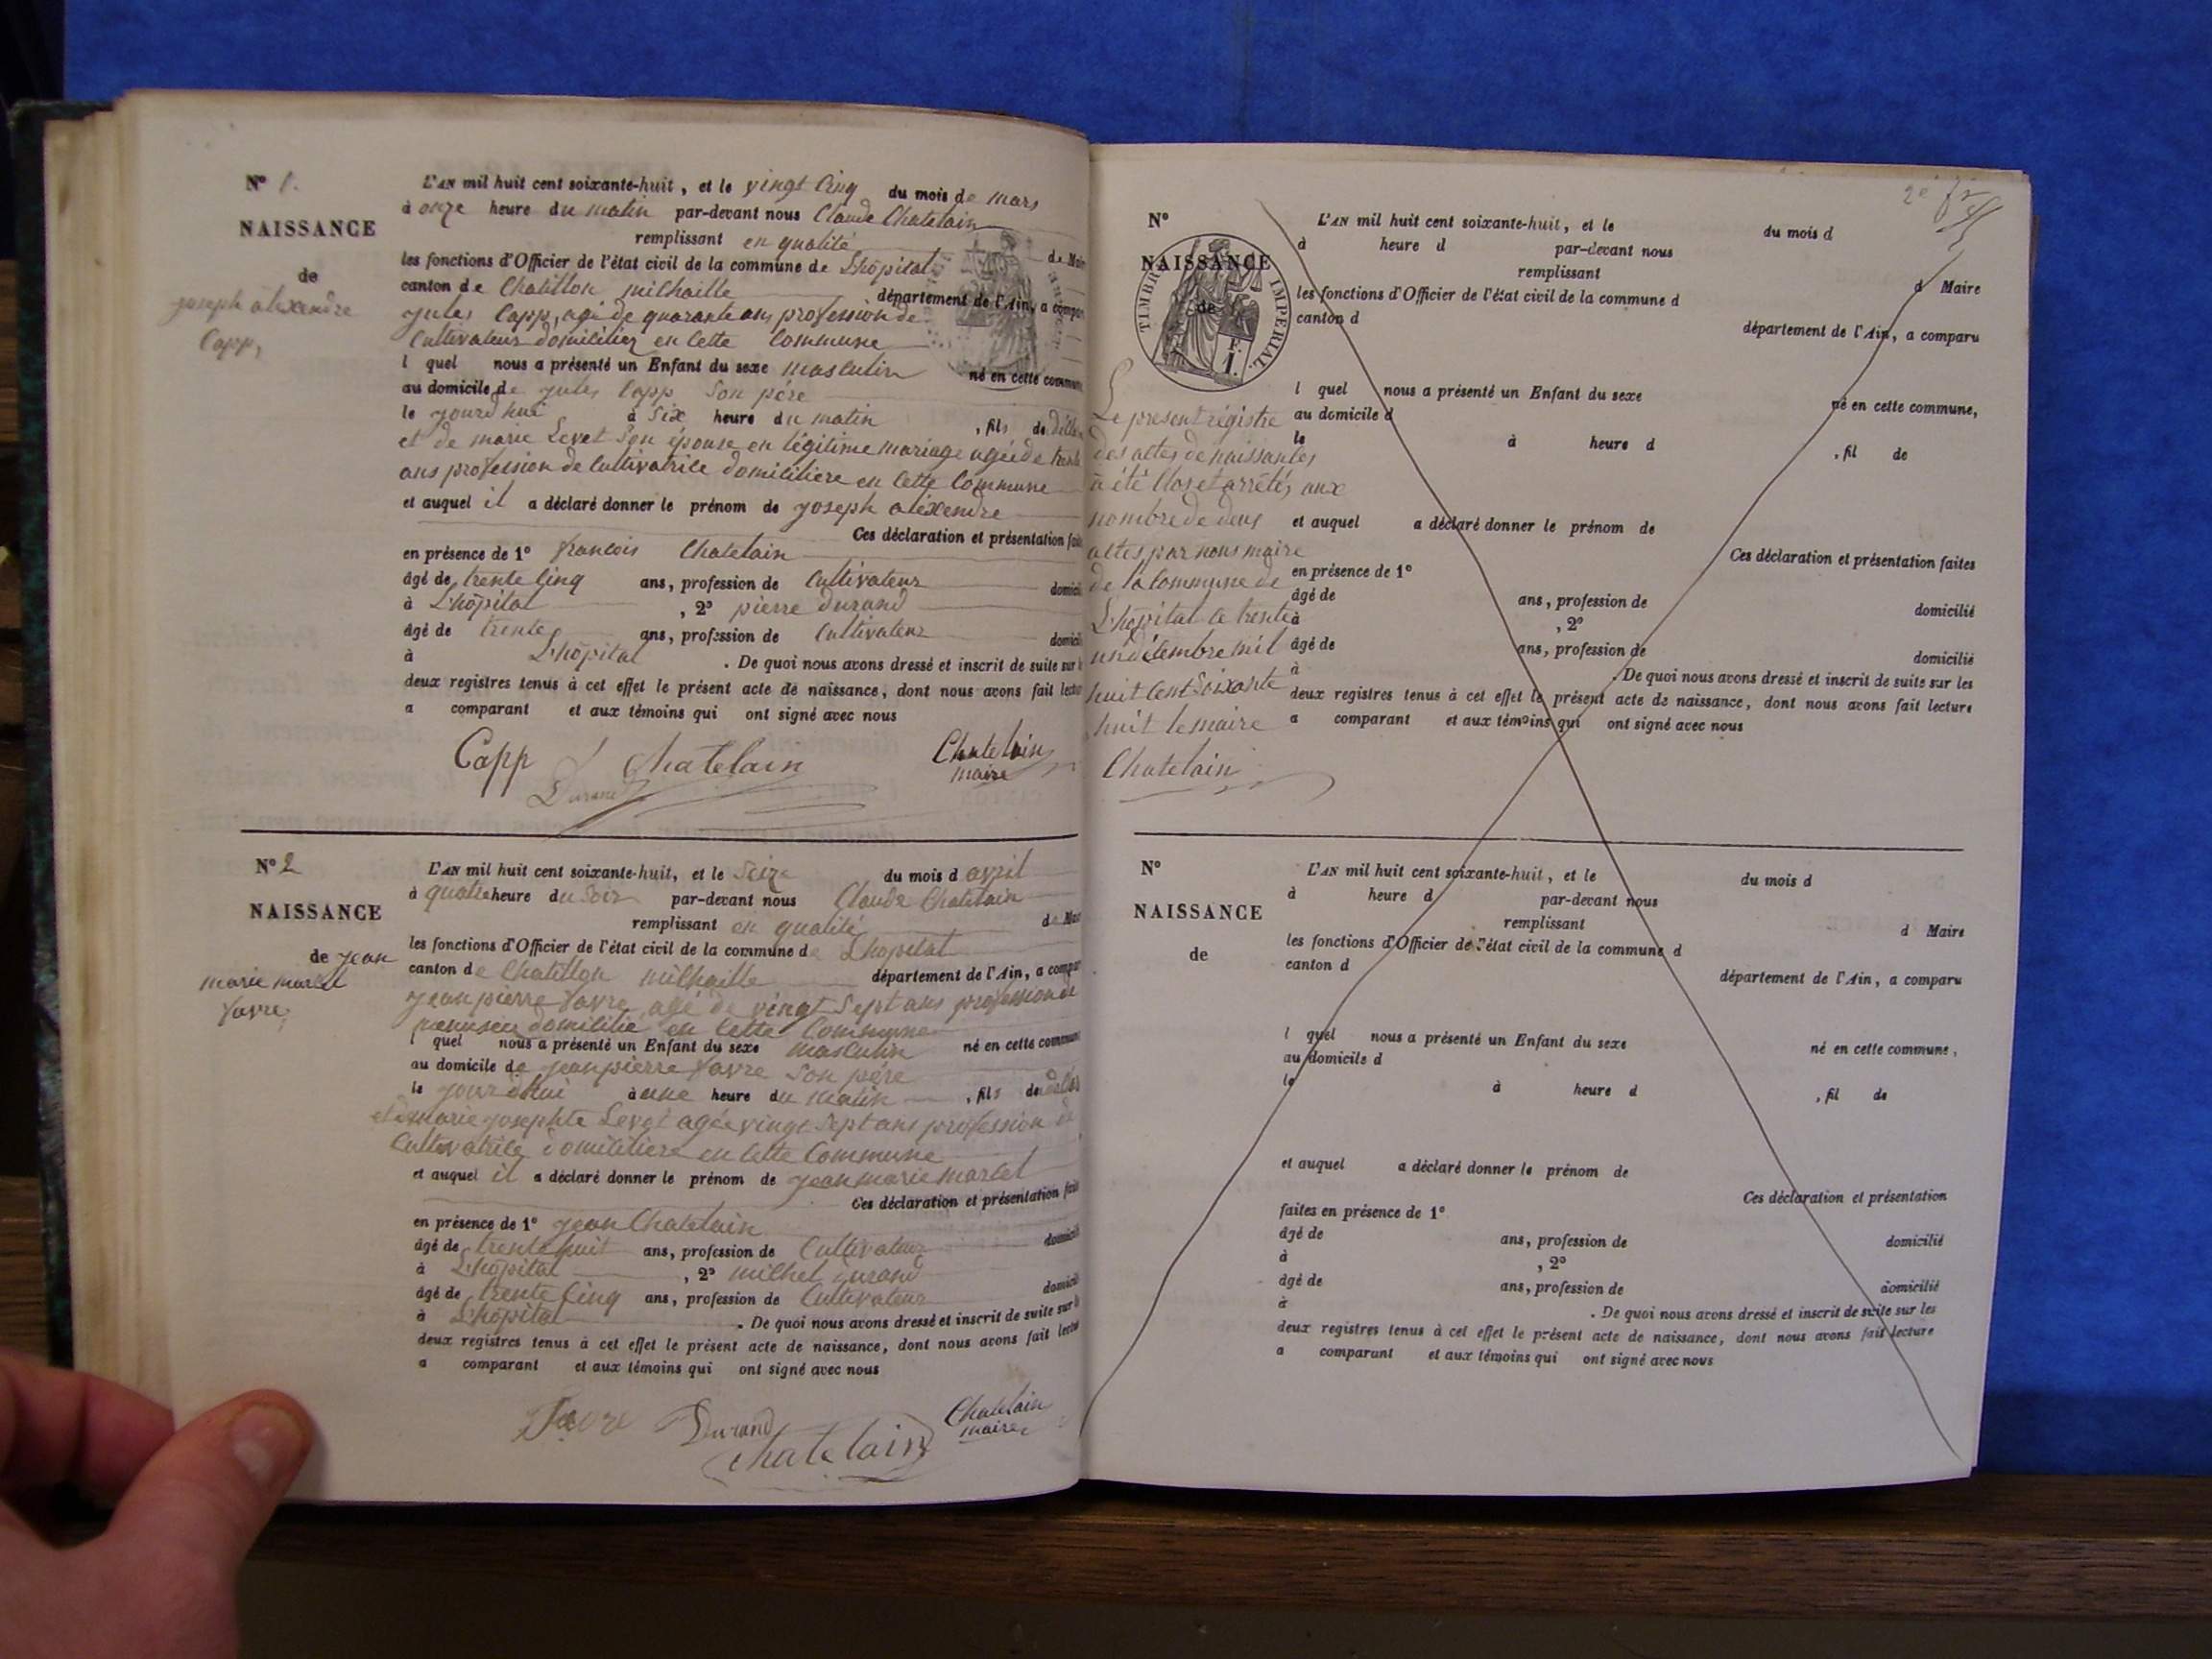 N° 1.
NAISSANCE
de
joseph alexendre
Capp,
L'AN mil huit cent soixante-huit, et le vingt Cinq du mois de mars
à onze heure du matin par-devant nous Claude Chatelain
remplissant en qualité de Mair
les fonctions d'Officier de l'état civil de la commune de Lhôpital
canton de Chatillon milhaille département de l'Ain, a compar
jules Capp, agé de quarante ans profession de
Cultivateur domicilier en Cette Commune
l quel nous a présenté un Enfant du sexe masculin né en cette commun
au domicile de jules Capp Son père
le jourd'hui à Six heure du matin , fils de
et de marie Levet Son épouse en légitime mariage agée de trente
ans profession de Cultivatrice domicilière en Cette Commune
et auquel il a déclaré donner le prénom de joseph aléxendre
Ces déclaration et présentation fait
en présence de 1° francois Chatelain
âgé de trente Cinq ans, profession de Cultivateur domicil
à L'hôpital , 2° pierre durand
âgé de trente ans, profession de Cultivateur domicil
à L'hôpital . De quoi nous avons dressé et inscrit de suite sur l
deux registres tenus à cet effet le présent acte de naissance, dont nous avons fait lectur
a comparant et aux témoins qui ont signé avec nous
Capp Chatelain Chatelain
maire
Durand
N° 2
NAISSANCE
de jean
marie marcel
favre,
L'AN mil huit cent soixante-huit, et le Seize du mois d avril
à quatre heure du Soir par-devant nous Claude Chatelain
remplissant en qualité de Mair
les fonctions d'Officier de l'état civil de la commune de Lhopital
canton de Chatillon milhaille département de l'Ain, a compar
jean pierre favre, agé de vingt Sept ans profession de
menusier domicilié en Cette Commune
l quel nous a présenté un Enfant du sexe masculin né en cette commun
au domicile de jean pierre favre Son père
le jourd'hui à une heure du matin , fils de
et de marie josephte Levet agée vingt Sept ans profession de
Cultivatrice domicilière en Cette Commune
et auquel il a déclaré donner le prénom de jean marie marcel
Ces déclaration et présentation fait
en présence de 1° jean Chatelain
âgé de trente huit ans, profession de Cultivateur domicil
à L'hôpital , 2° michel durand
âgé de trente Cinq ans, profession de Cultivateur domicil
à L'hôpital . De quoi nous avons dressé et inscrit de suite sur l
deux registres tenus à cet effet le présent acte de naissance, dont nous avons fait lectur
a comparant et aux témoins qui ont signé avec nous
Favre Durand Chatelain
maire
Chatelain
2e
N°
NAISSANCE
de
TIMBRE IMPÉRIAL
F.
1.
L'AN mil huit cent soixante-huit, et le du mois d
à heure d par-devant nous
remplissant d Maire
les fonctions d'Officier de l'état civil de la commune d
canton d département de l'Ain, a comparu
l quel nous a présenté un Enfant du sexe né en cette commune,
au domicile d
le à heure d , fil de
et auquel a déclaré donner le prénom de
Ces déclaration et présentation faites
en présence de 1°
âgé de ans, profession de domicilié
à , 2°
âgé de ans, profession de domicilié
à . De quoi nous avons dressé et inscrit de suite sur les
deux registres tenus à cet effet le présent acte de naissance, dont nous avons fait lecture
a comparant et aux témoins qui ont signé avec nous
Le present régistre
des actes de naissances
a été Clos et arrêtés aux
nombre de deux
actes par nous maire
de la Commune de
L'hôpital le trente
un décembre mil
huit Cent Soixante
huit le maire
Chatelain
N°
NAISSANCE
de
L'AN mil huit cent soixante-huit, et le du mois d
à heure d par-devant nous
remplissant d Maire
les fonctions d'Officier de l'état civil de la commune d
canton d département de l'Ain, a comparu
l quel nous a présenté un Enfant du sexe né en cette commune,
au domicile d
le à heure d , fil de
et auquel a déclaré donner le prénom de
Ces déclaration et présentation
faites en présence de 1°
âgé de ans, profession de domicilié
à , 2°
âgé de ans, profession de domicilié
à . De quoi nous avons dressé et inscrit de suite sur les
deux registres tenus à cet effet le présent acte de naissance, dont nous avons fait lecture
a comparant et aux témoins qui ont signé avec nous